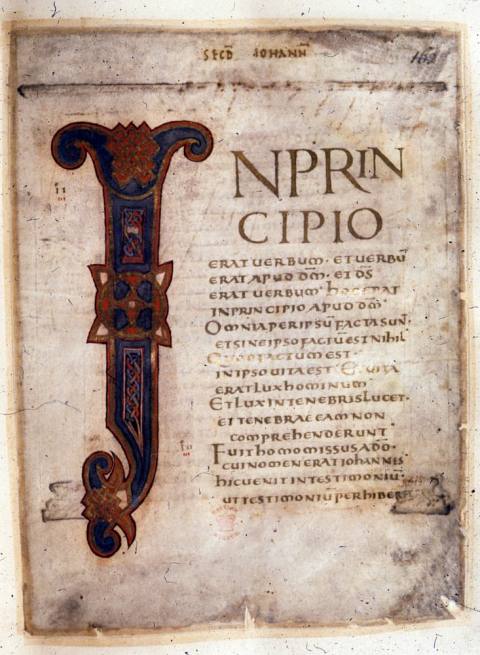 SECD̄ IOHANN̄
162
INPRIN
CIPIO
ERAT UERBUM · ET UERBŪ
ERAT APUD DM̄ · ET DS̄
ERAT UERBUM · HOC ERAT
IN PRINCIPIO APUD DM̄
OMNIA PER IPSŪ FACTA SUN͞
ET SINE IPSO FACTŪ EST NIHIL
QUOD FACTUM EST ·
IN IPSO UITA EST · ET UITA
ERAT LUX HOMINUM
ET LUX IN TENEBRIS LUCET ·
ET TENEBRAE EAM NON
COMPREHENDERUNT
FUIT HOMO MISSUS A DŌ ·
CUI NOMEN ERAT IOHANNIS
HIC UENIT IN TESTIMONIŪ
UT TESTIMONIŪ PERHIBER